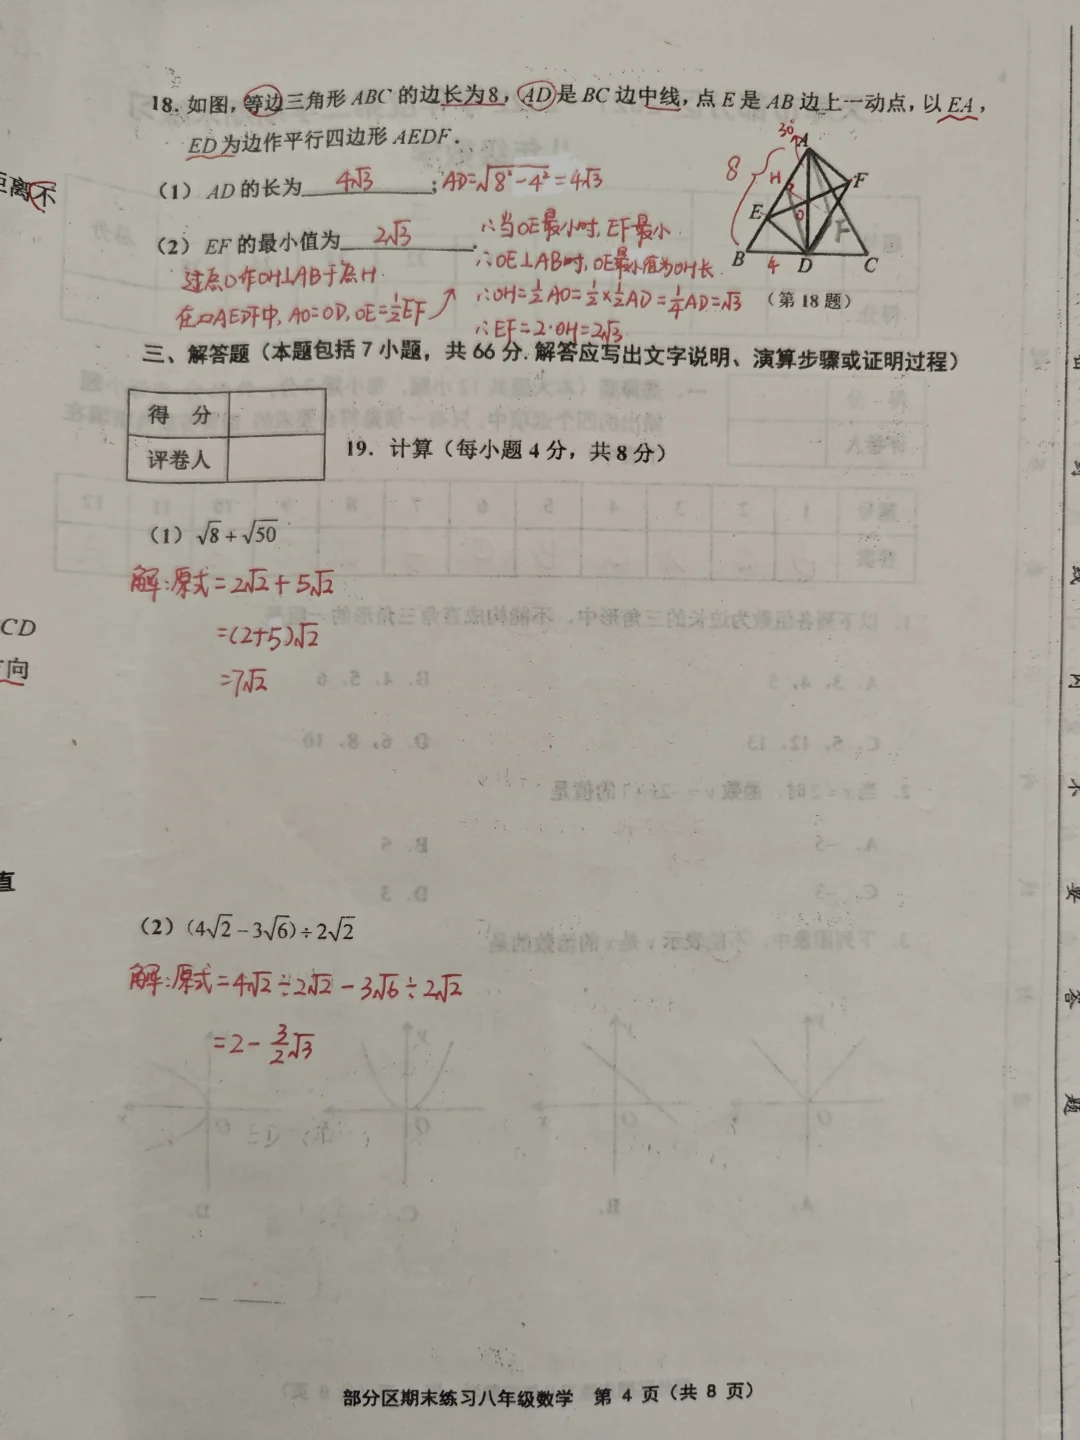 18. 如图，等边三角形 ABC 的边长为8，AD 是 BC 边中线，点 E 是 AB 边上一动点，以 EA，
ED 为边作平行四边形 AEDF．
距离不
（1）AD 的长为 4√3 ；AD=√8²-4²=4√3
（2）EF 的最小值为 2√3 .
∴当OE最小时, EF最小
过点O作OH⊥AB于点H
∴OE⊥AB时, OE最小值为OH长
在▱AEDF中, AO=OD, OE=½EF
∴OH=½AO=½×½AD=¼AD=√3
∴EF=2·OH=2√3
30°
A
8
H
F
E
O
F
B
4
D
C
（第 18 题）
三、解答题（本题包括 7 小题，共 66 分. 解答应写出文字说明、演算步骤或证明过程）
得 分
评卷人
19. 计算（每小题 4 分，共 8 分）
（1）√8 + √50
解:原式=2√2+5√2
=(2+5)√2
=7√2
CD
向
直
（2）(4√2 - 3√6) ÷ 2√2
解:原式=4√2÷2√2-3√6÷2√2
=2-3/2√3
线
内
不
要
答
题
部分区期末练习八年级数学 第 4 页（共 8 页）